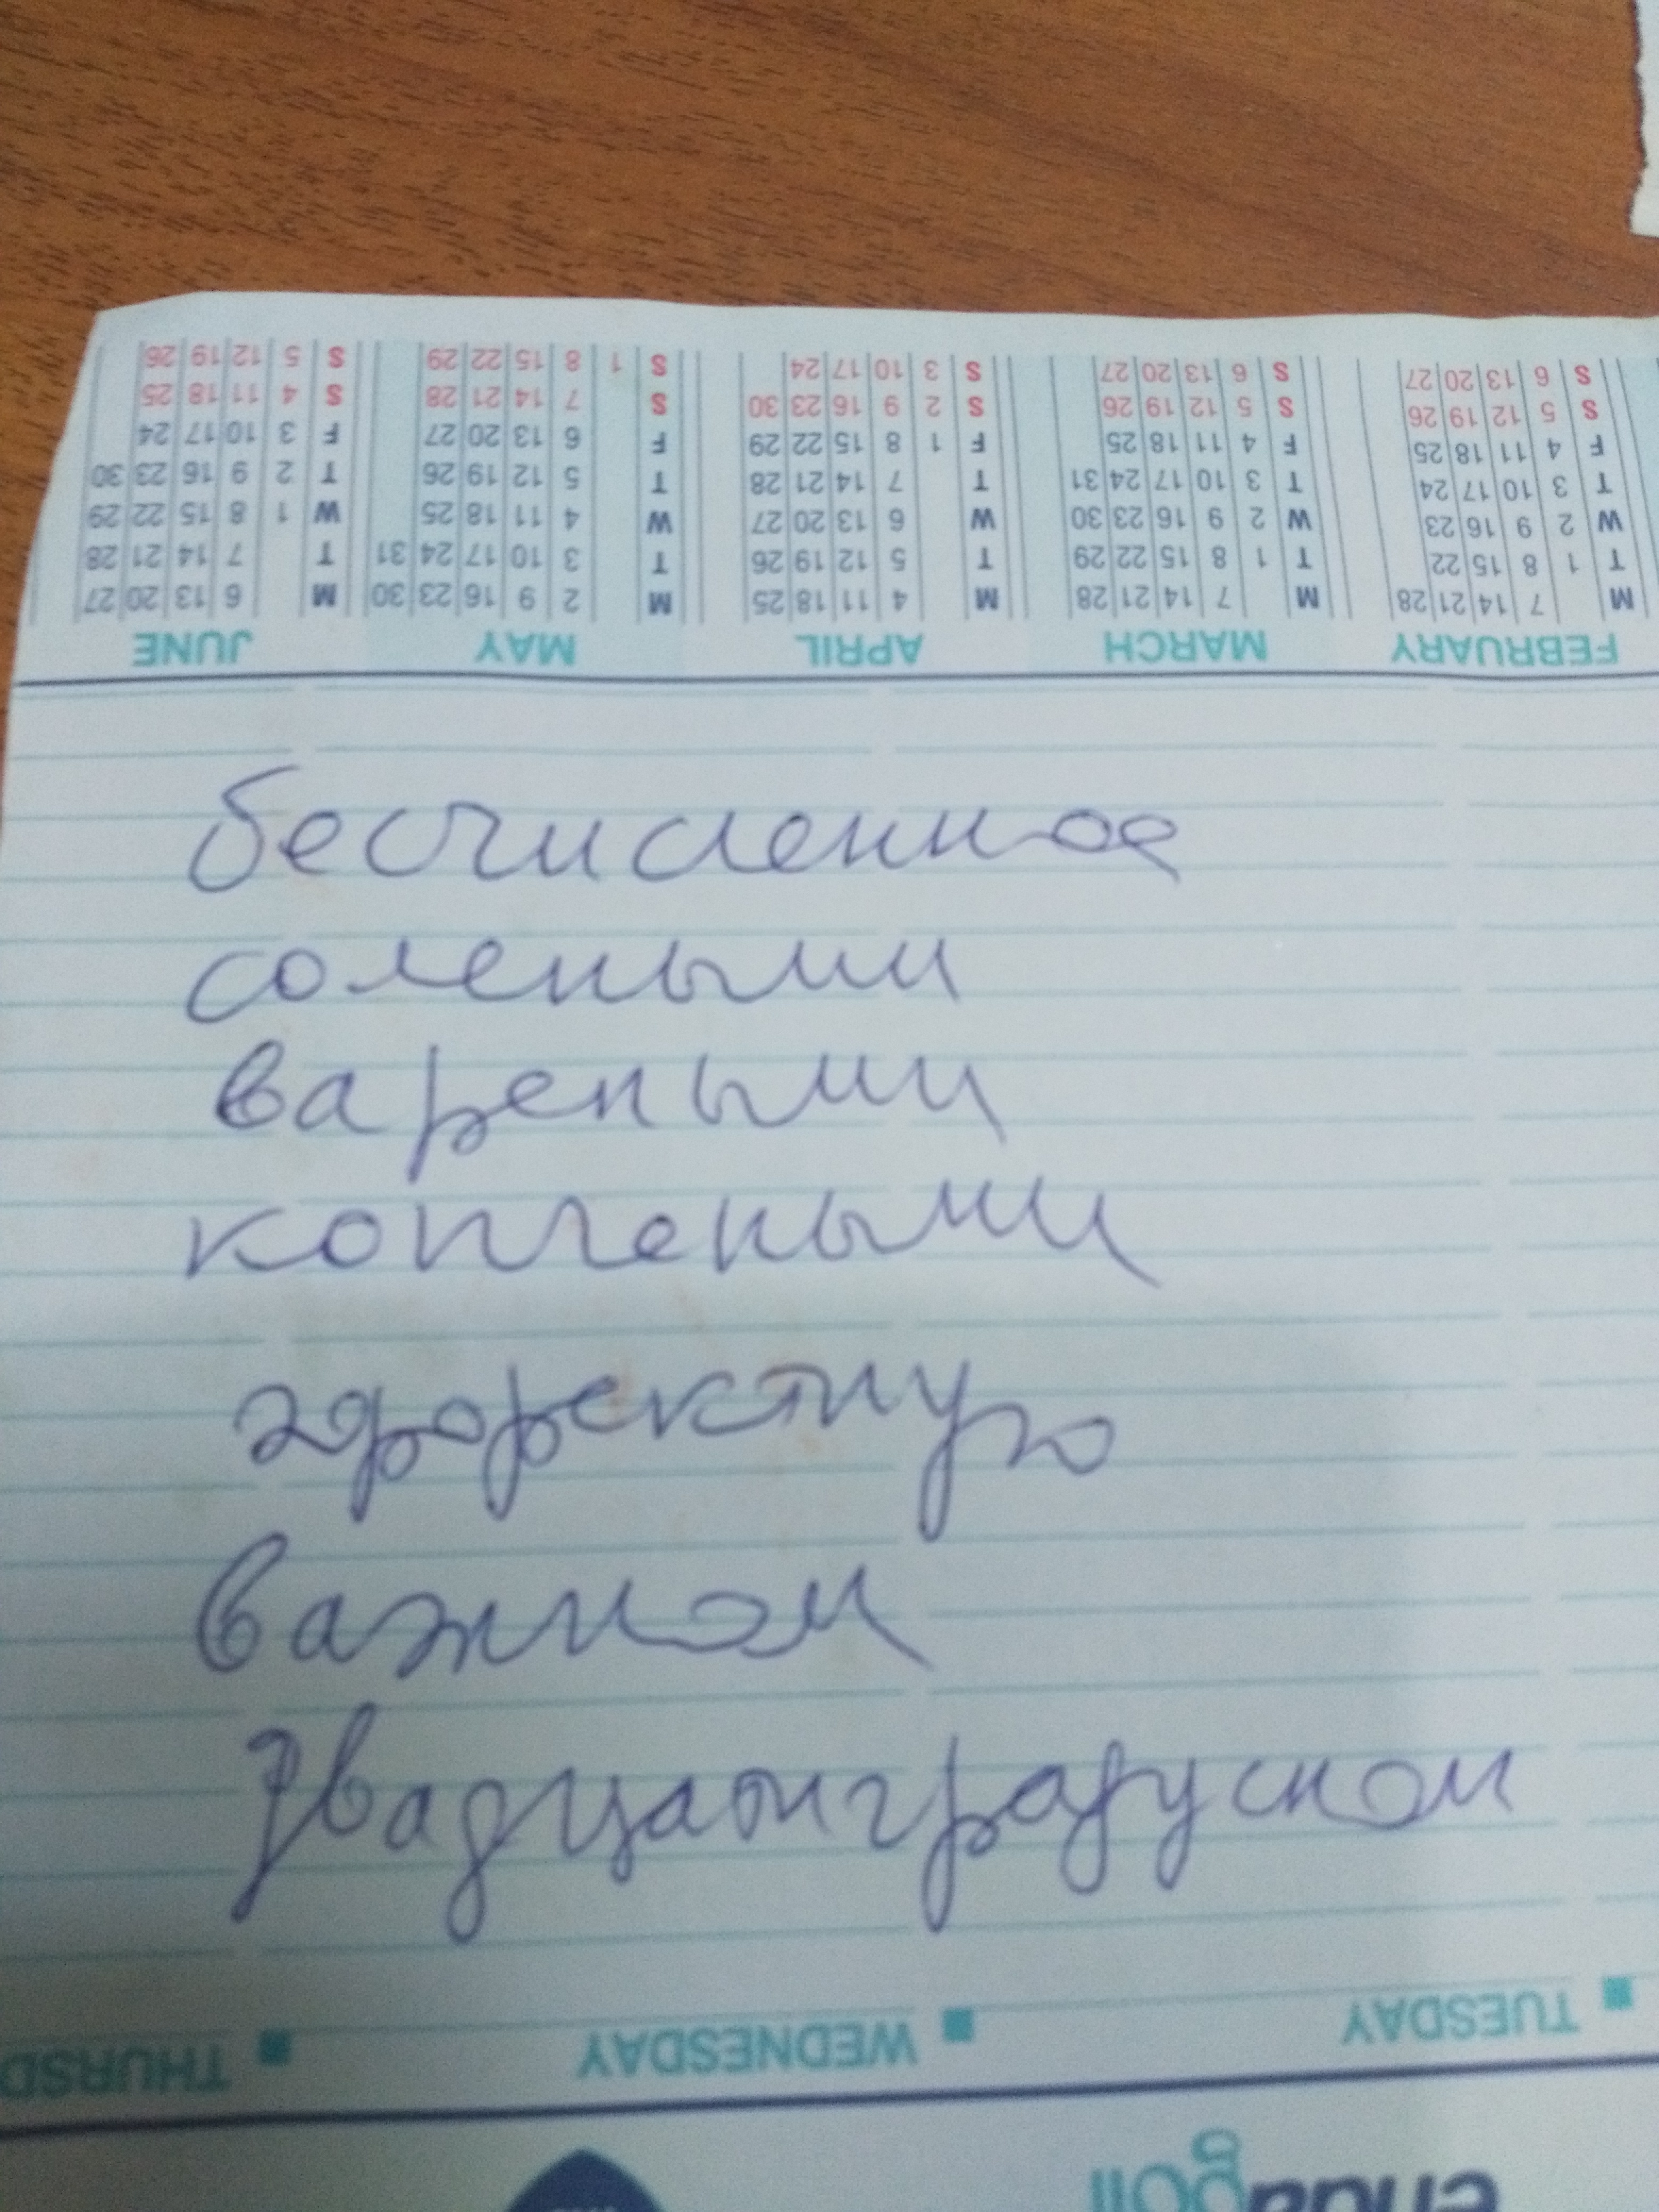 FEBRUARY MARCH APRIL MAY JUNE
M 7 14 21 28 M 7 14 21 28 M 4 11 18 25 M 2 9 16 23 30 M 6 13 20 27
T 1 8 15 22 T 1 8 15 22 29 T 5 12 19 26 T 3 10 17 24 31 T 7 14 21 28
W 2 9 16 23 W 2 9 16 23 30 W 6 13 20 27 W 4 11 18 25 W 1 8 15 22 29
T 3 10 17 24 T 3 10 17 24 31 T 7 14 21 28 T 5 12 19 26 T 2 9 16 23 30
F 4 11 18 25 F 4 11 18 25 F 1 8 15 22 29 F 6 13 20 27 F 3 10 17 24
S 5 12 19 26 S 5 12 19 26 S 2 9 16 23 30 S 7 14 21 28 S 4 11 18 25
S 6 13 20 27 S 6 13 20 27 S 3 10 17 24 S 1 8 15 22 29 S 5 12 19 26
бесчисленное
солеными
вареными
копчеными
эффектную
важном
двадцатиградусном
TUESDAY WEDNESDAY THURSD